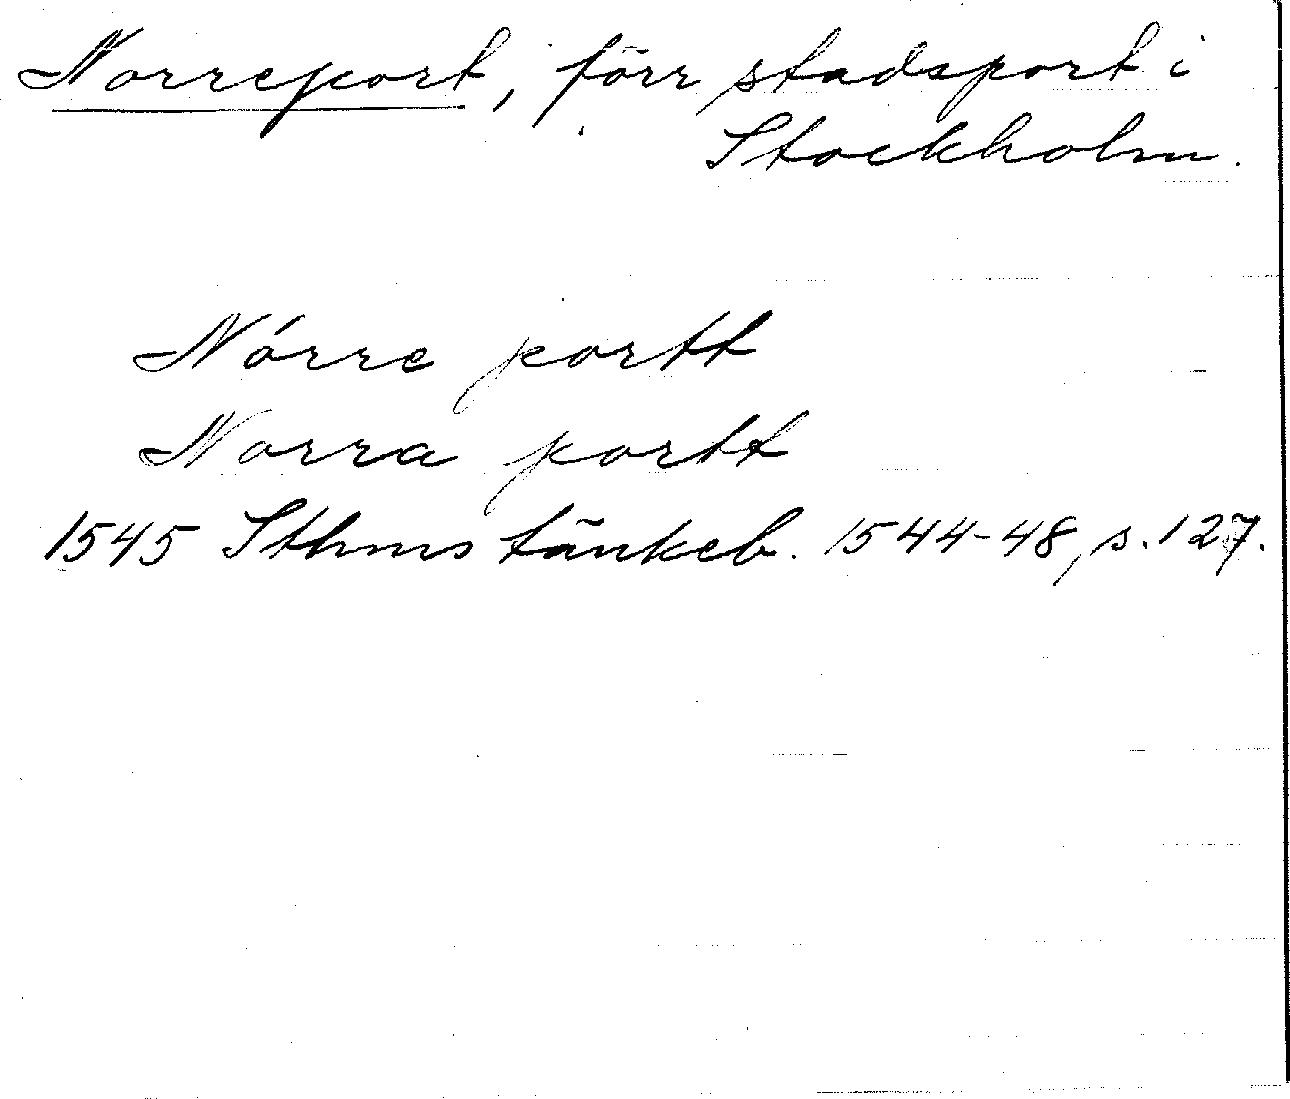 Norreport, förr stadsport i
Stockholm.
Nórre portt
Norra portt
1545 Sthms tänkeb. 1544-48, s. 127.